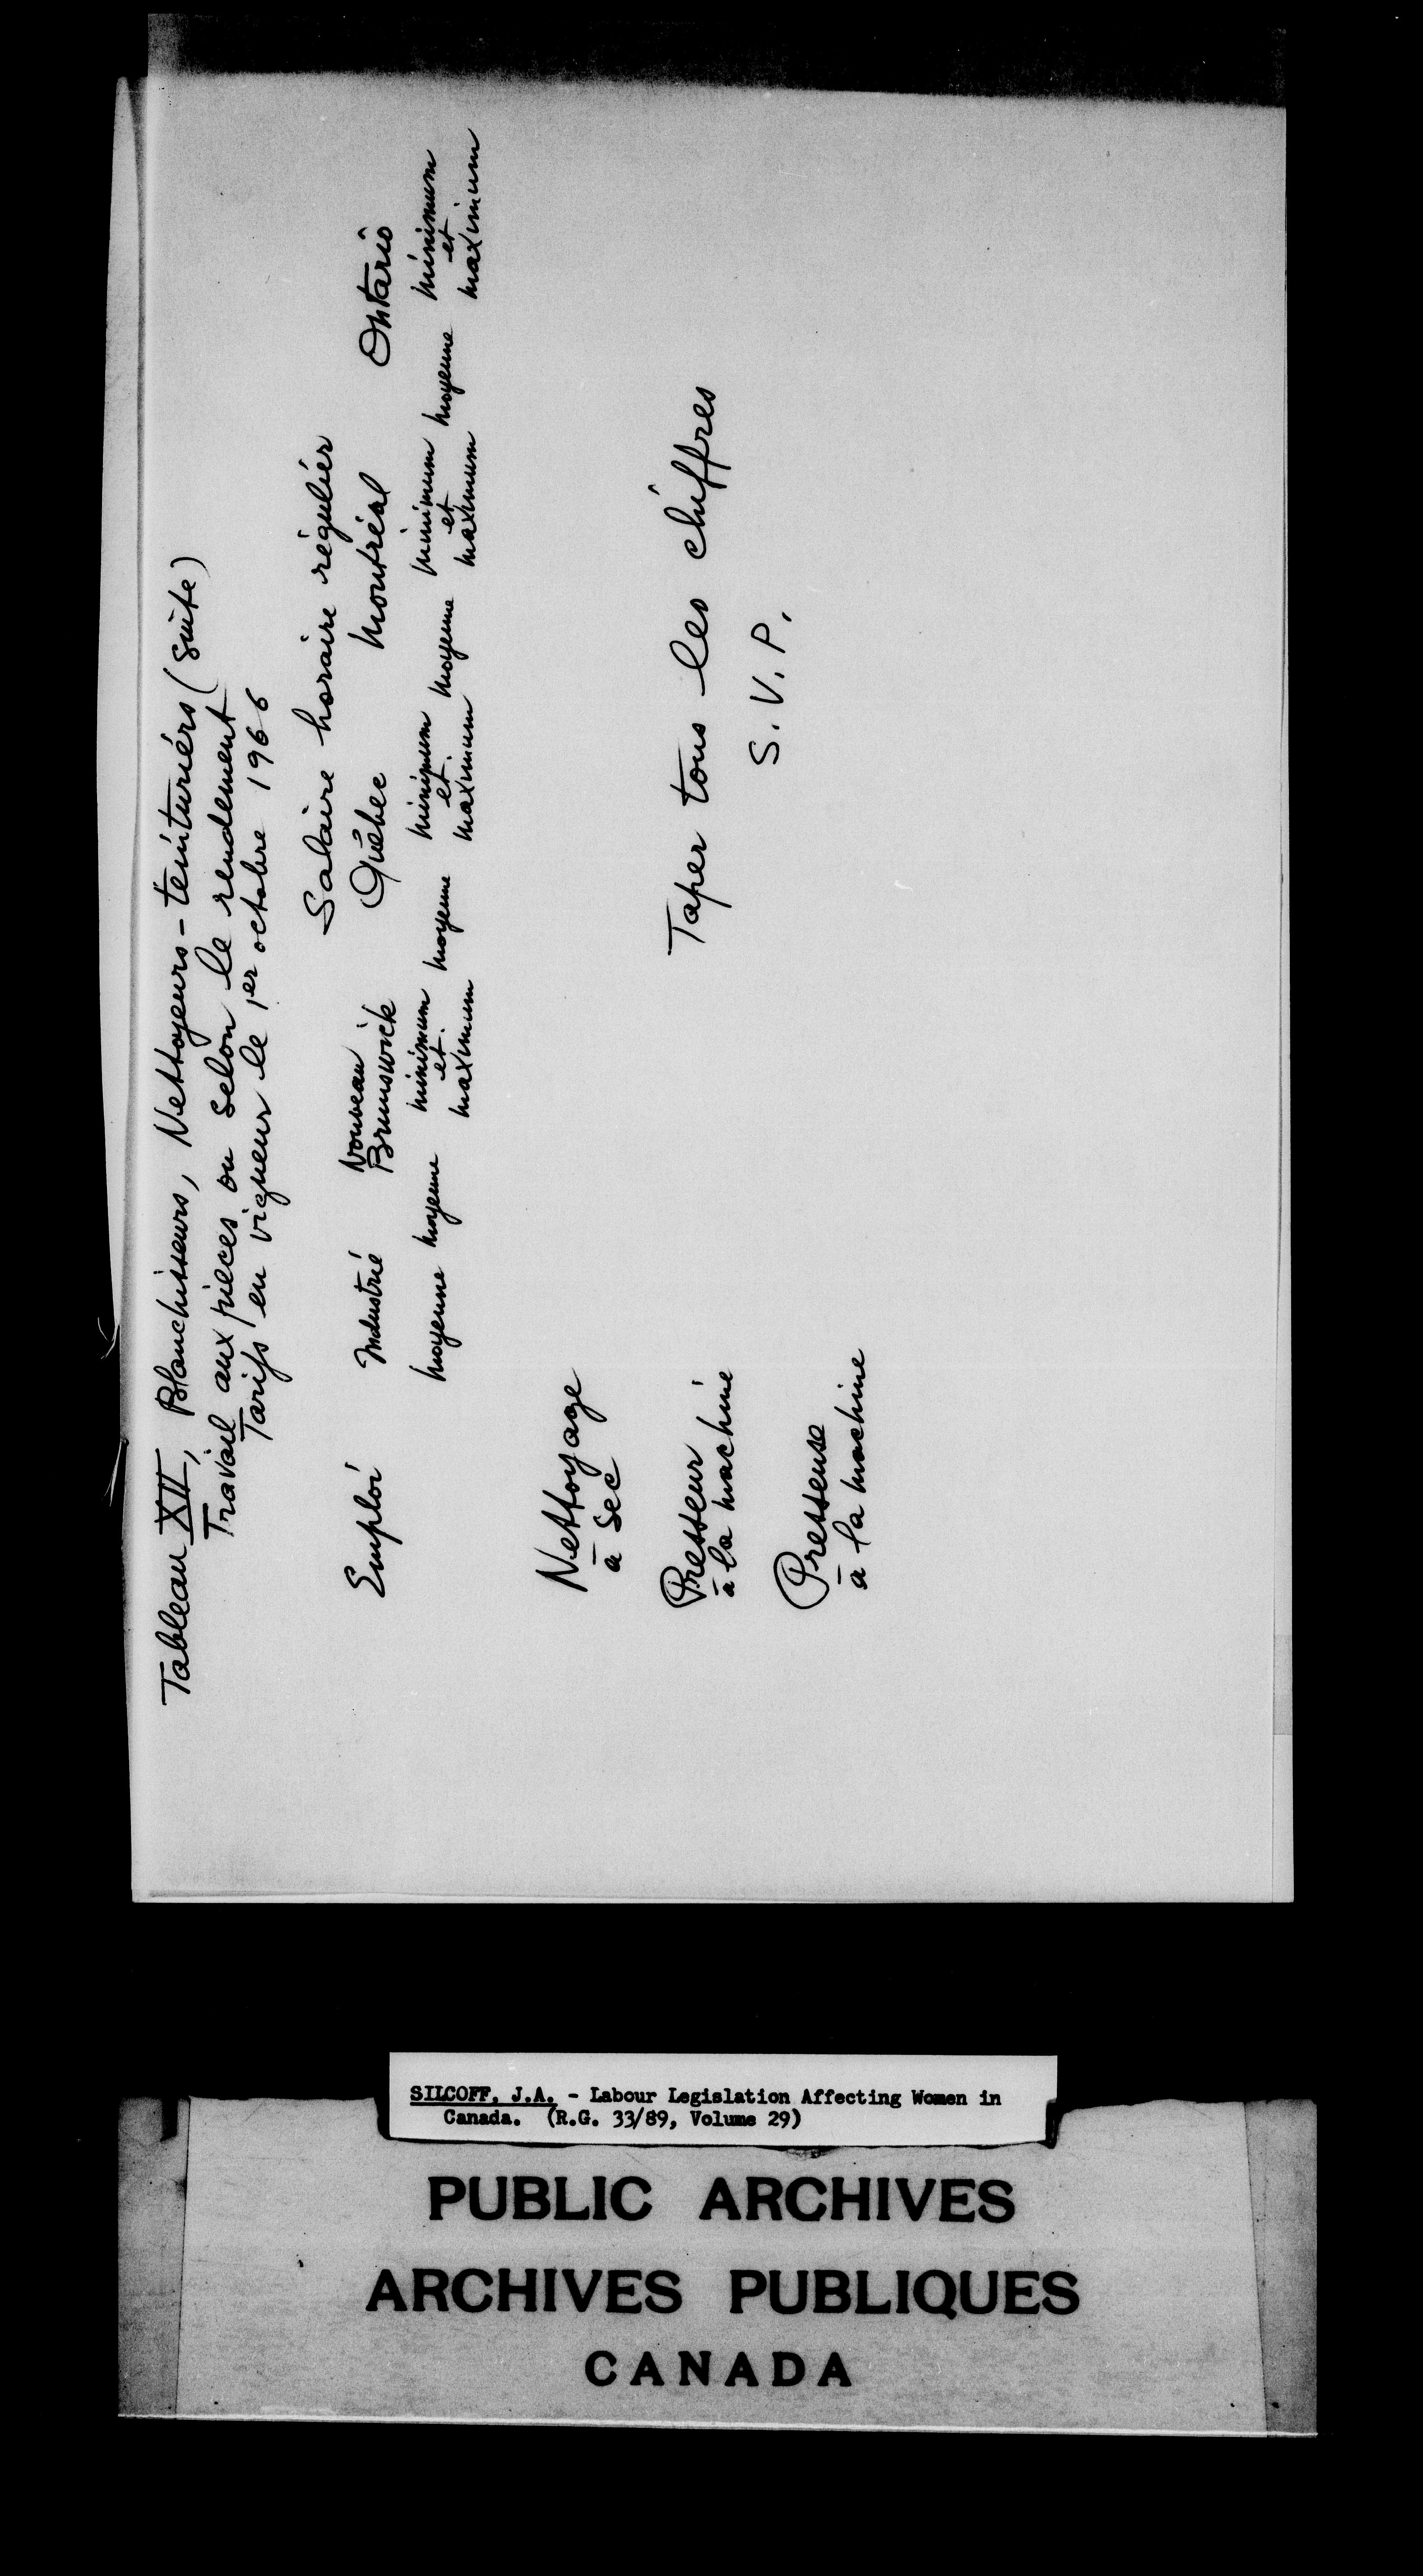 Tableau XII, Blanchisseurs, Nettoyeurs-teinturiers (suite)
Travail aux pièces ou selon le rendement
Tarifs en vigueur le 1er octobre 1966
Salaire horaire régulier
Emploi Industrie Nouveau Brunswick Québec Montréal Ontario
moyenne moyenne minimum et maximum moyenne minimum et maximum moyenne minimum et maximum moyenne minimum et maximum
Nettoyage
à sec
Presseur
à la machine
Taper tous les chiffres
S.V.P.
Presseuse
à la machine
SILCOFF, J.A. - Labour Legislation Affecting Women in
Canada. (R.G. 33/89, Volume 29)
PUBLIC ARCHIVES
ARCHIVES PUBLIQUES
CANADA